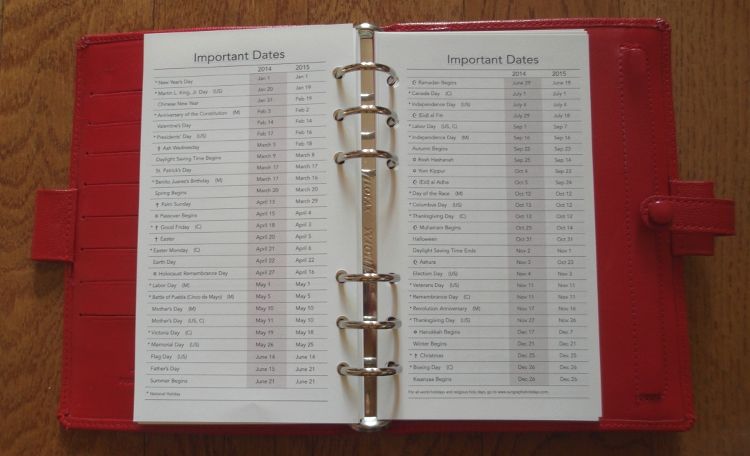 Important Dates
2014 2015
* New Year's Day Jan 1 Jan 1
* Martin L. King, Jr. Day (US) Jan 20 Jan 19
Chinese New Year Jan 31 Feb 19
* Anniversary of the Constitution (M) Feb 3 Feb 2
Valentine's Day Feb 14 Feb 14
* Presidents' Day (US) Feb 17 Feb 16
✝ Ash Wednesday March 5 Feb 18
Daylight Saving Time Begins March 9 March 8
St. Patrick's Day March 17 March 17
* Benito Juarez's Birthday (M) March 17 March 16
Spring Begins March 20 March 20
✝ Palm Sunday April 13 March 29
✡ Passover Begins April 15 April 4
* ✝ Good Friday (C) April 18 April 3
✝ Easter April 20 April 5
* Easter Monday (C) April 21 April 6
Earth Day April 22 April 22
✡ Holocaust Remembrance Day April 27 April 16
* Labor Day (M) May 1 May 1
* Battle of Puebla (Cinco de Mayo) (M) May 5 May 5
Mother's Day (M) May 10 May 10
Mother's Day (US, C) May 11 May 10
* Victoria Day (C) May 19 May 18
* Memorial Day (US) May 26 May 25
Flag Day (US) June 14 June 14
Father's Day June 15 June 21
Summer Begins June 21 June 21
* National Holiday
Important Dates
2014 2015
☪ Ramadan Begins June 29 June 18
* Canada Day (C) July 1 July 1
* Independence Day (US) July 4 July 4
☪ (Eid) al Fitr July 29 July 18
* Labor Day (US, C) Sep 1 Sep 7
* Independence Day (M) Sep 16 Sep 16
Autumn Begins Sep 22 Sep 23
✡ Rosh Hashanah Sep 25 Sep 14
✡ Yom Kippur Oct 4 Sep 23
☪ (Eid) al Adha Oct 5 Sep 24
* Day of the Race (M) Oct 12 Oct 12
* Columbus Day (US) Oct 13 Oct 12
* Thanksgiving Day (C) Oct 13 Oct 12
☪ Muharram Begins Oct 25 Oct 14
Halloween Oct 31 Oct 31
Daylight Saving Time Ends Nov 2 Nov 1
☪ Ashura Nov 3 Oct 23
Election Day (US) Nov 4 Nov 3
* Veterans Day (US) Nov 11 Nov 11
* Remembrance Day (C) Nov 11 Nov 11
* Revolution Anniversary (M) Nov 17 Nov 16
* Thanksgiving Day (US) Nov 27 Nov 26
✡ Hanukkah Begins Dec 17 Dec 7
Winter Begins Dec 21 Dec 21
* ✝ Christmas Dec 25 Dec 25
* Boxing Day (C) Dec 26 Dec 26
Kwanzaa Begins Dec 26 Dec 26